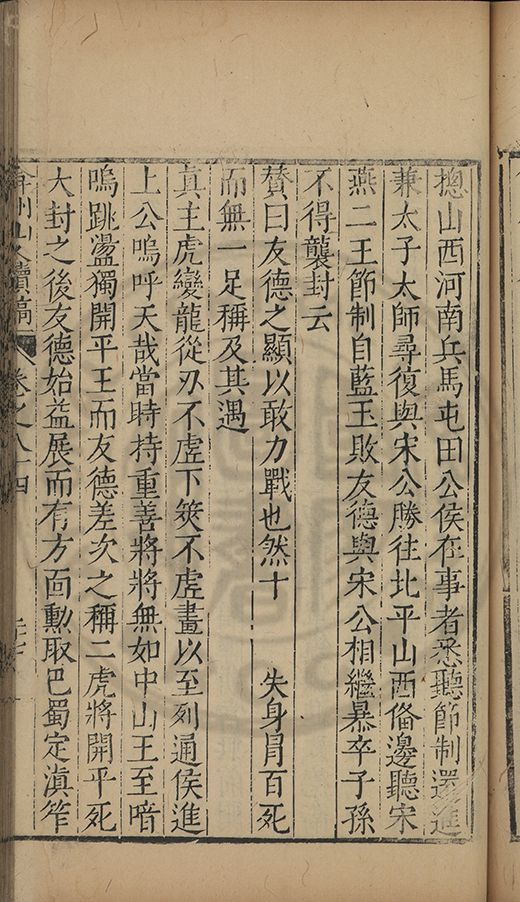 摠山西河南兵馬屯田公侯在事者悉聽節制還進
兼太子太師尋復與宋公勝往北平山西俻邊聽宋
燕二王節制自藍玉敗友德與宋公相繼暴卒子孫
不得襲封云
賛曰友德之顯以敢力戰也然十 失身冐百死
而無一足稱及其遇
真主虎變龍從刅不虗下筴不虗畫以至列通侯進
上公嗚呼天哉當時持重善將將無如中山王至喑
嗚跳盪獨開平王而友德差次之稱二虎將開平死
大封之後友德始益展而有方面勳取巴蜀定滇笮
弇州山人續稿 卷之八十四